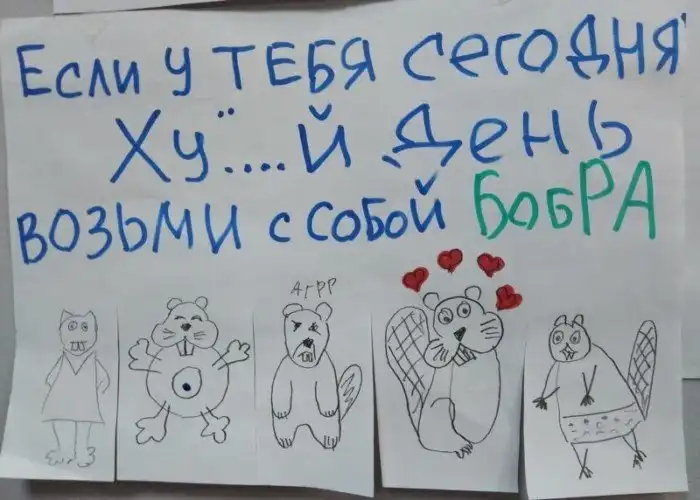 Если у ТЕБЯ сегодня
Ху....й день
возьми с собой БОБРА
АГРР